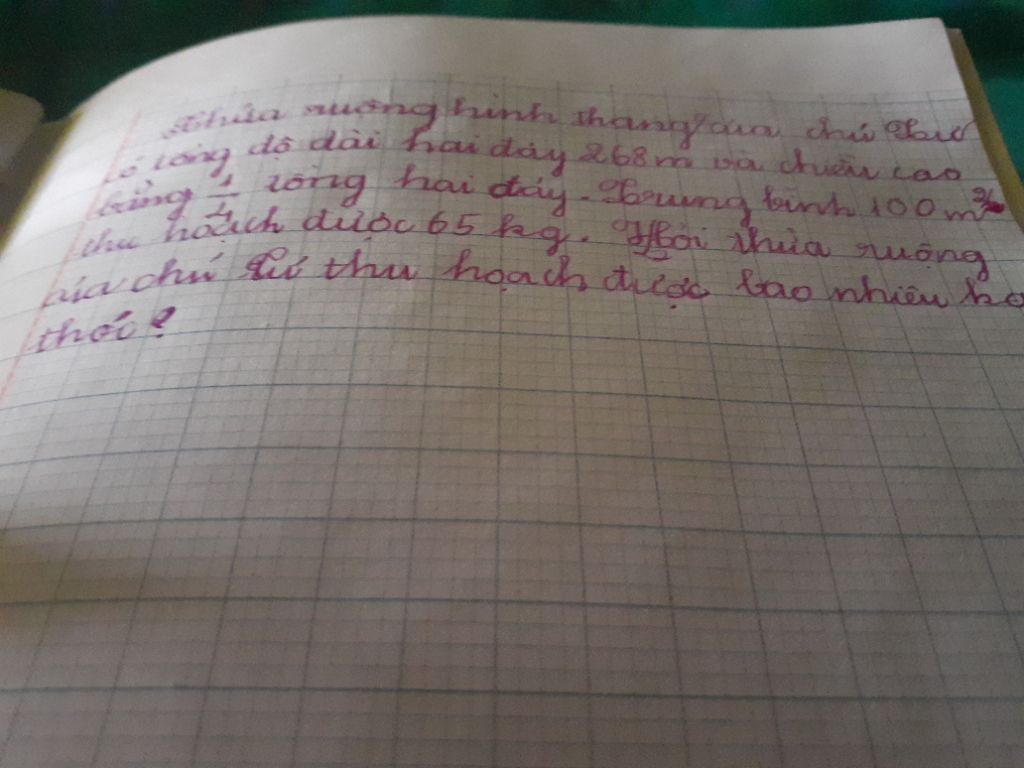 Thửa ruộng hình thang của chú Tư
có tổng độ dài hai đáy 268m và chiều cao
bằng 1/4 tổng hai đáy. Trung bình 100m²
thu hoạch được 65 kg. Hỏi thửa ruộng
của chú Tư thu hoạch được bao nhiêu
thóc?